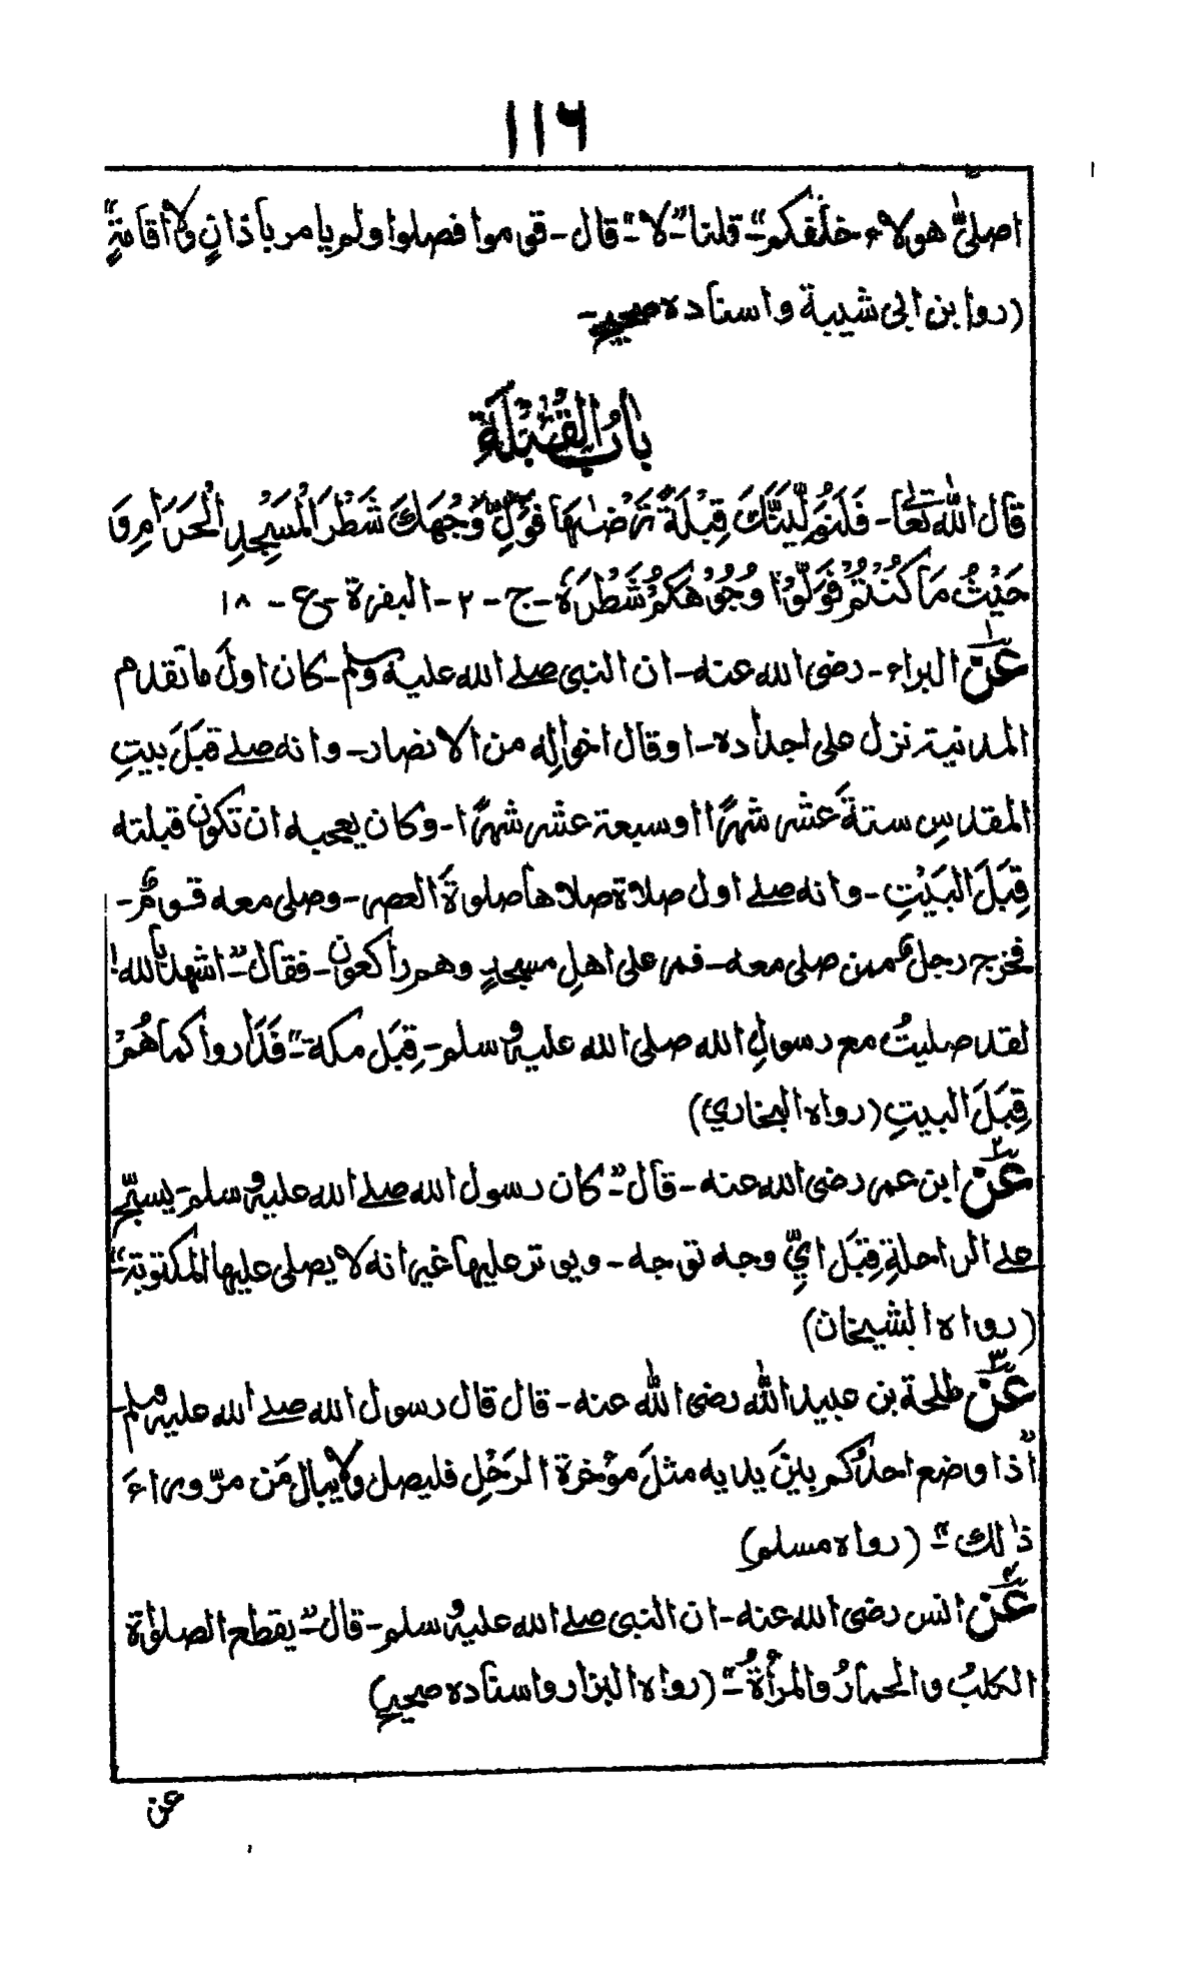 ١١٦
اصلیّ هولاء خلفكم" قلنا "لا" قال - قوموا فصلوا ولم يامر باذانٍ ولا اقامةٍ"
(روا بن ابی شیبة واسناده صحیح -
بابُ القُبْلَة
قال اللہ تعالٰی - فَلَنُوَلِّيَنَّكَ قِبْلَةً تَرْضٰىهَا فَوَلِّ وَجْهَكَ شَطْرَ الْمَسْجِدِ الْحَرَامِ وَ
حَيْثُ مَا كُنْتُمْ فَوَلُّوْا وُجُوْهَكُمْ شَطْرَهٗ - ج - ٢ - البقرة - ع - ١٨
١
عَنْ البراء - رضی الله عنه - ان النبی صلے الله علیه وسلم - كان اول ما تقدم
المدنية نزل على اجداده - او قال اخواله من الانصار - وانه صلے قبَلَ بيتِ
المقدسِ ستةَ عَشر شهرًا او سبعة عشر شهرًا - وكان يعجبه ان تكون قبلته
قِبَلَ البَيْتِ - وانه صلے اول صلاة صلاها صلوةَ العصر - وصلى معه قومٌ -
فخرج رجل ممن صلى معه - فمر على اهلِ مسجدٍ وهم راكعون - فقال "اشهد بالله!
لقد صليتُ مع رسولِ الله صلى الله عليه وسلم - قِبَل مكة" فَدَاروا كما هُمْ
قِبَلَ البيتِ (رواه البخاري)
٢
عَنْ ابن عمر رضی الله عنه - قال "كان رسول الله صلے الله عليه وسلم - يسبّح
علے الراحلةِ قِبَل ایِّ وجه توجه - ويوتر عليها غير انه لا يصلى عليها المكتوبة"
(رواه الشيخان)
٣
عَنْ طلحة بن عبيد الله رضی الله عنه - قال قال رسول الله صلے الله عليه وسلم -
"اذا وضع احدكم بينَ يديه مثلَ مؤخرة الرَحْلِ فليصل ولا يبال مَن مرّ وراءَ
ذالك" (رواه مسلم)
٤
عَنْ انس رضی الله عنه - ان النبی صلے الله عليه وسلم - قال "يقطع الصلوٰة
الكلبُ والحمارُ والمرأةُ" (رواه البزار واسناده صحیح)
عن